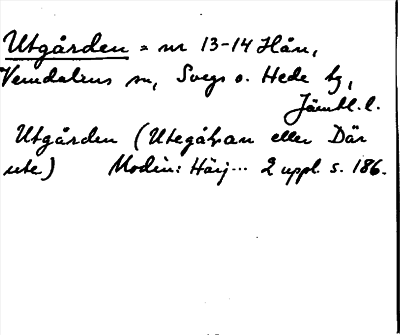 Utgården = nr 13-14 Hån,
Vemdalens sn, Svegs o. Hede tg,
Jämtl. l.
Utgården (Utegål,an eller Där
ute) Modin: Härj... 2 uppl. s. 186.